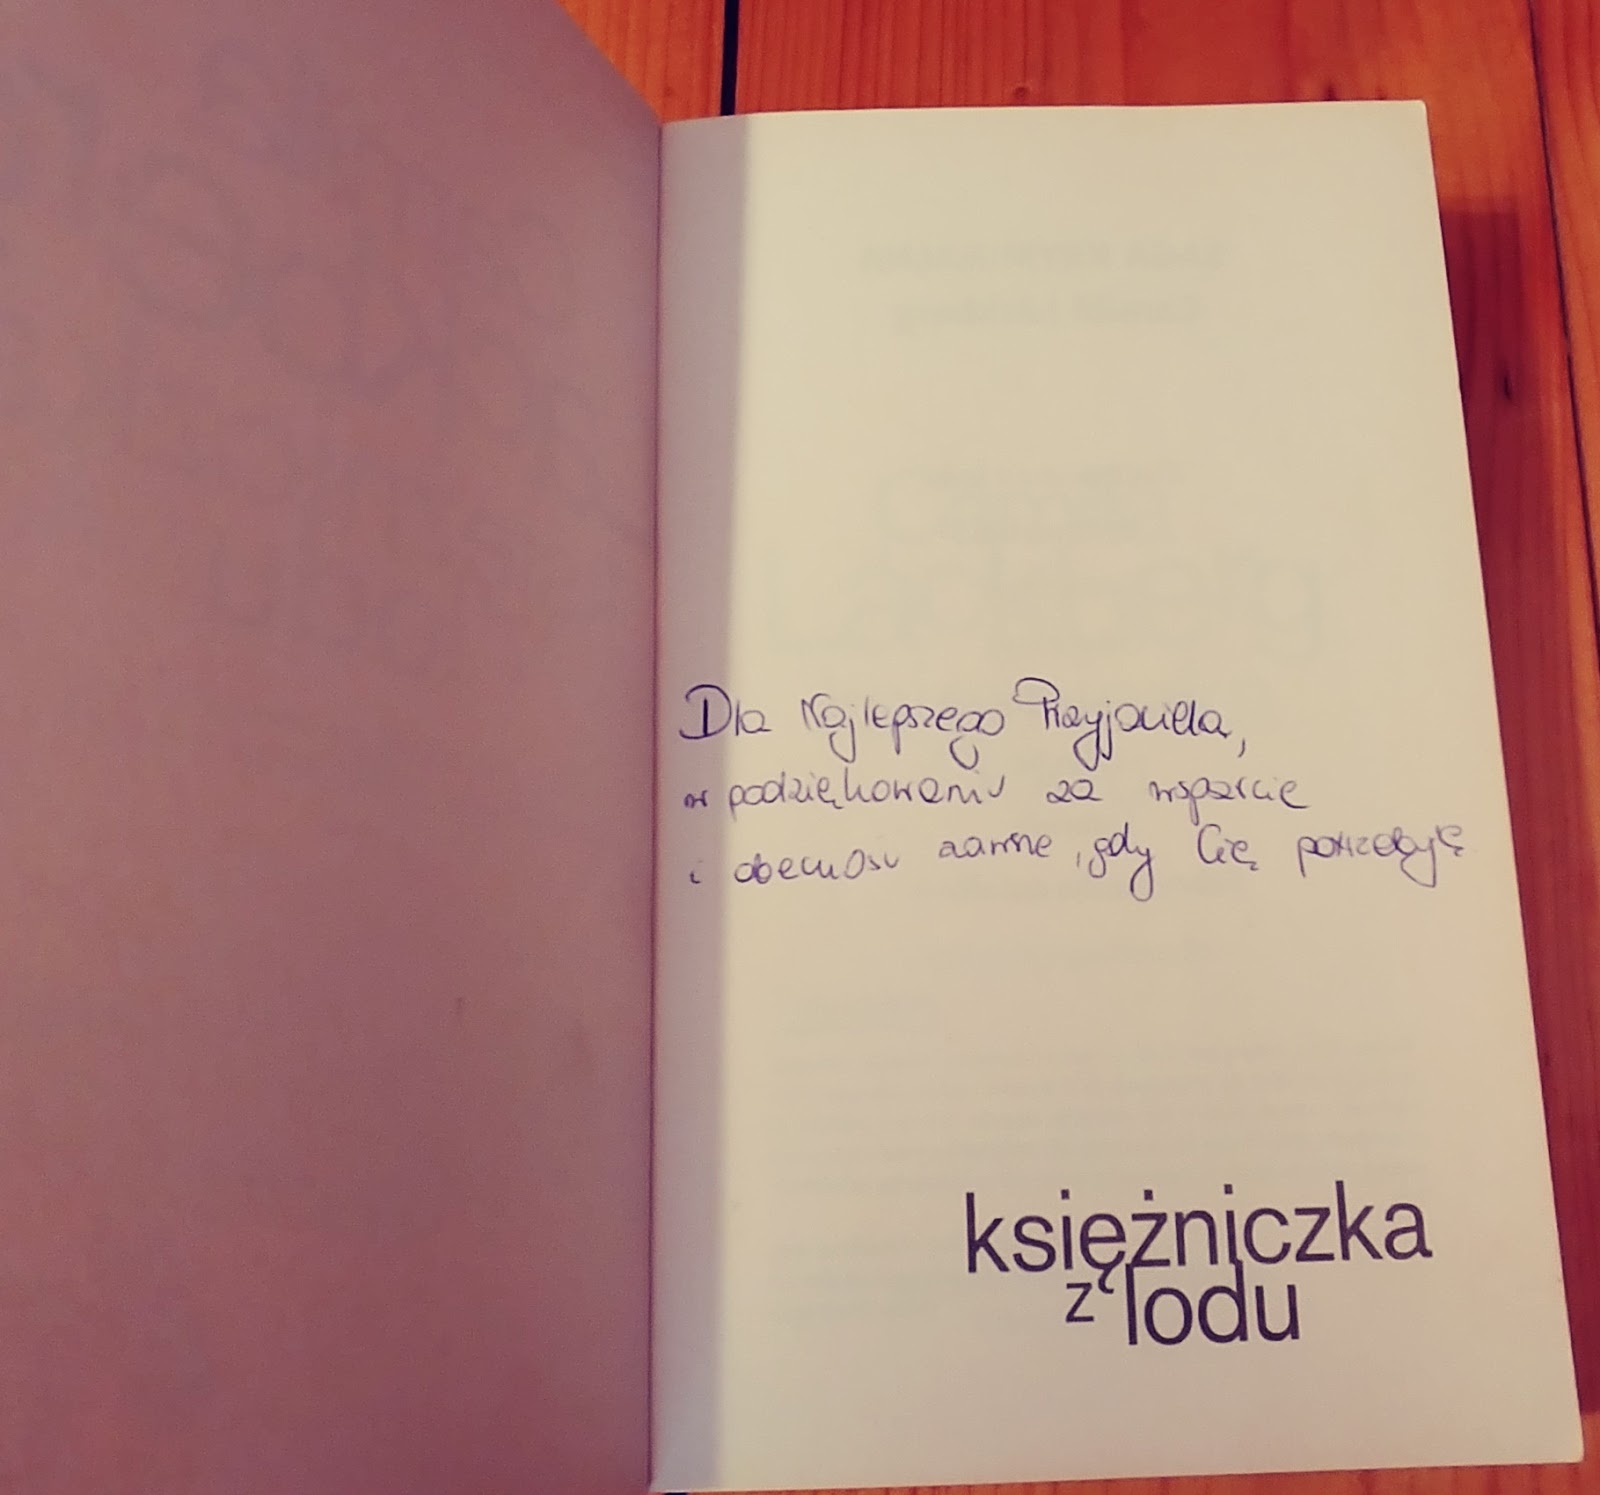 Dla Najlepszego Przyjaciela,
w podziękowaniu za wsparcie
i obecność zawsze, gdy Cię potrzebuję
księżniczka
z lodu